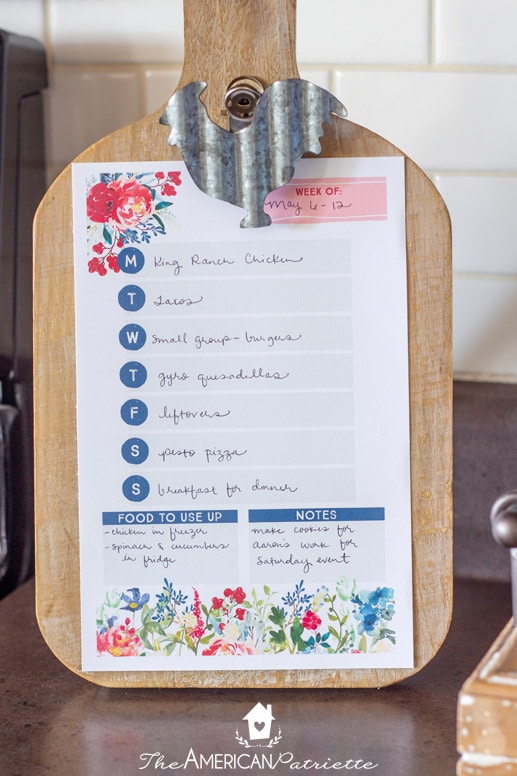 WEEK OF:
May 6-12
M King Ranch Chicken
T tacos
W small group - burgers
T gyro quesadillas
F leftovers
S pesto pizza
S breakfast for dinner
FOOD TO USE UP
-chicken in freezer
-spinach & cucumbers
in fridge
NOTES
-make cookies for
Aaron's work for
Saturday event
The AMERICAN Patriette